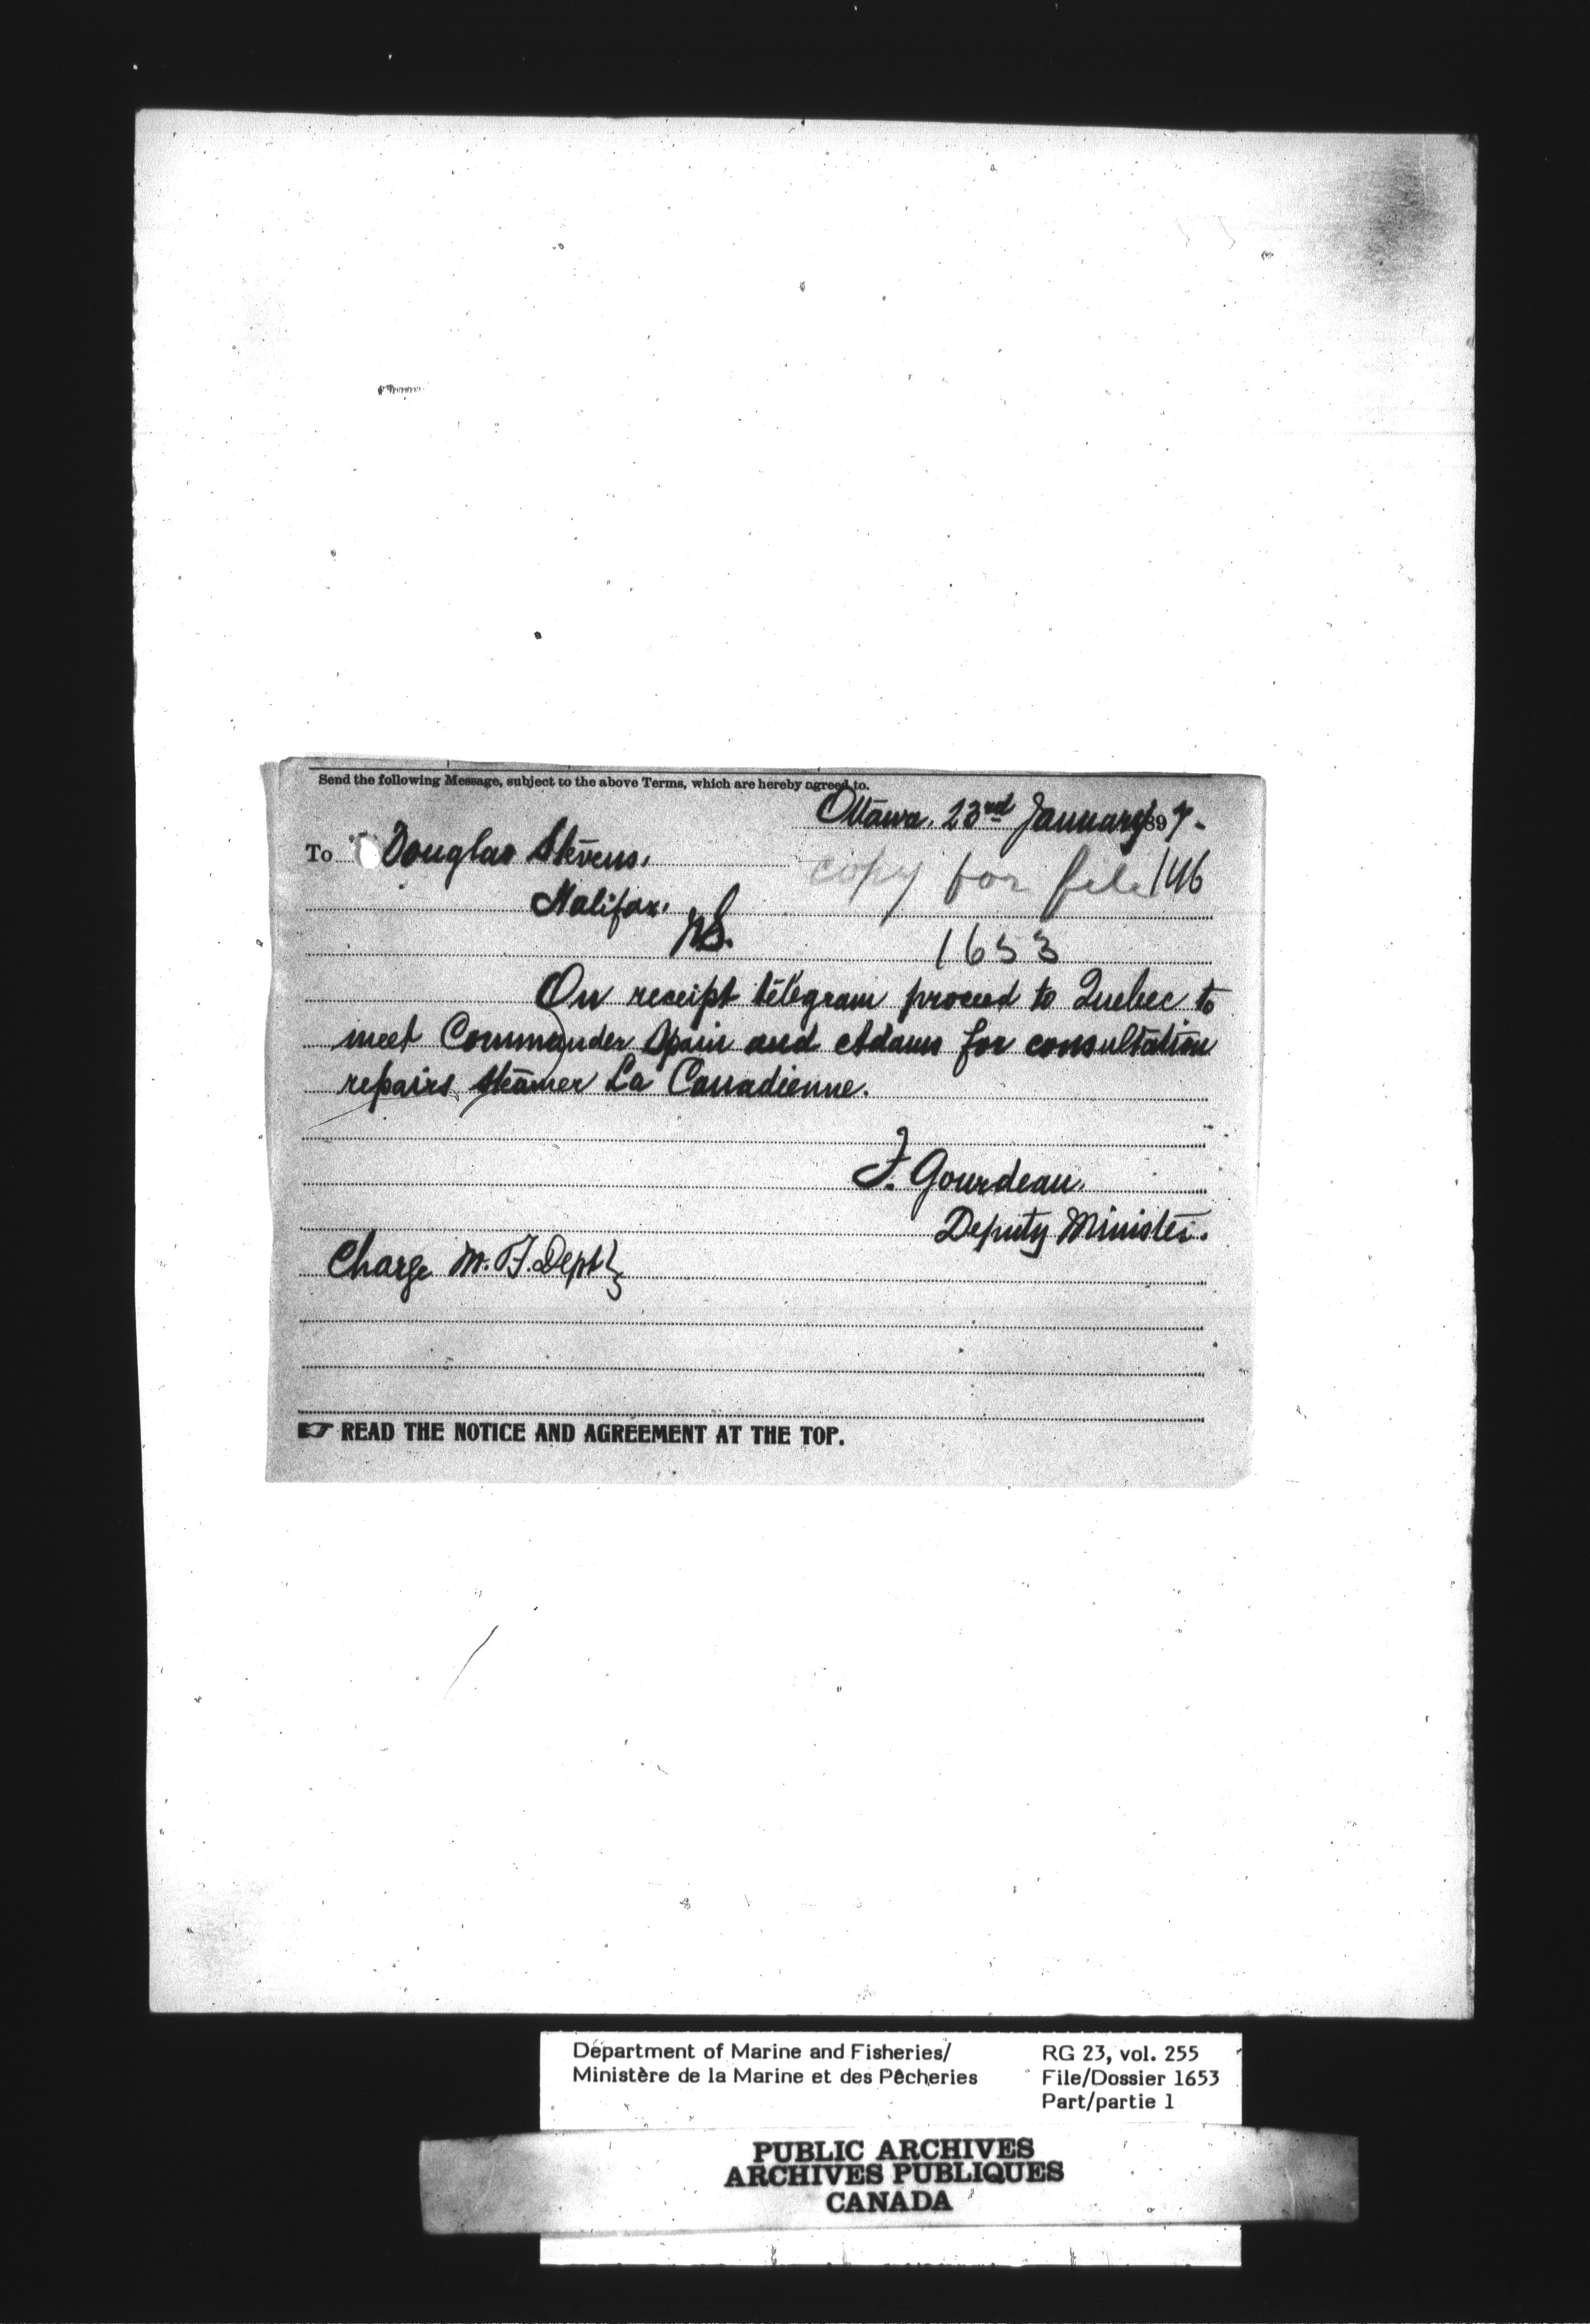 Send the following Message, subject to the above Terms, which are hereby agreed to.
Ottawa, 23rd January 1897.
To Douglas Stevens,
copy for file 146
Halifax,
NS.
1653
On receipt telegram proceed to Quebec to
meet Commander Spain and Adams for consultation
repairs steamer La Canadienne.
F. Gourdeau,
Deputy Minister.
Charge M. F. Dept
READ THE NOTICE AND AGREEMENT AT THE TOP.
Department of Marine and Fisheries/
Ministère de la Marine et des Pêcheries
RG 23, vol. 255
File/Dossier 1653
Part/partie 1
PUBLIC ARCHIVES
ARCHIVES PUBLIQUES
CANADA